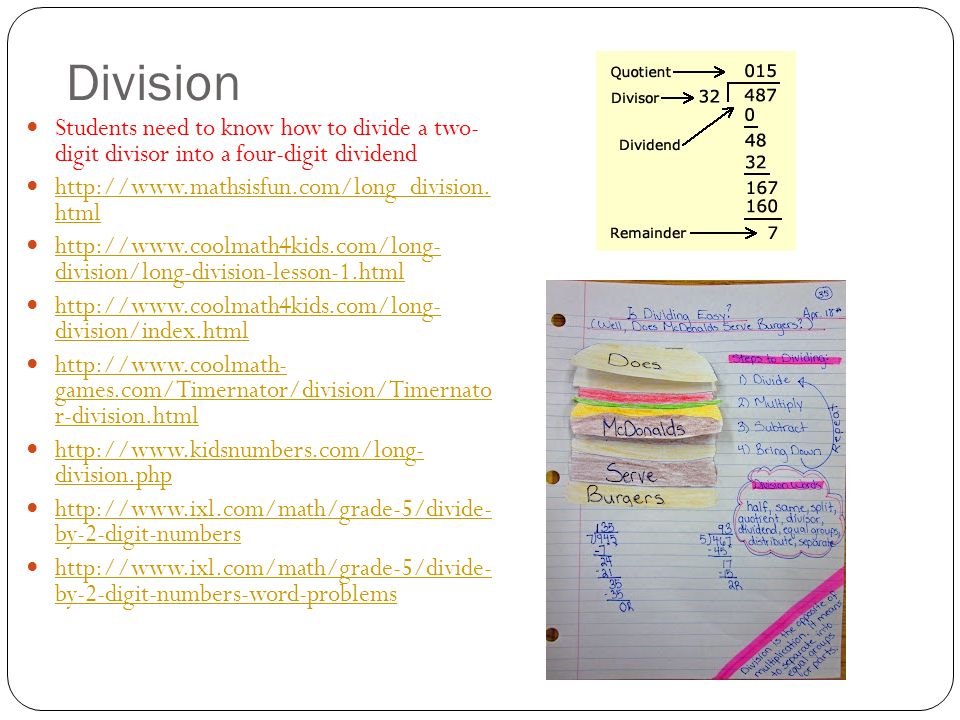 Division
Students need to know how to divide a two-
digit divisor into a four-digit dividend
http://www.mathsisfun.com/long_division.
html
http://www.coolmath4kids.com/long-
division/long-division-lesson-1.html
http://www.coolmath4kids.com/long-
division/index.html
http://www.coolmath-
games.com/Timernator/division/Timernato
r-division.html
http://www.kidsnumbers.com/long-
division.php
http://www.ixl.com/math/grade-5/divide-
by-2-digit-numbers
http://www.ixl.com/math/grade-5/divide-
by-2-digit-numbers-word-problems
Quotient 015
Divisor 32 487
0
Dividend 48
32
167
160
Remainder 7
35
Is Dividing Easy? Apr. 18th
(Well, Does McDonalds Serve Burgers?)
Does
McDonalds
Serve
Burgers
Steps to Dividing:
1) Divide
2) Multiply
3) Subtract
4) Bring Down
Repeat
Division Words
half, same, split,
quotient, divisor,
dividend, equal groups,
distribute, separate
135
7)945
-7
24
-21
35
-35
0R
93
5)467
-45
17
-15
2R
Division is the opposite of
multiplication. It means
to separate into
equal groups
or parts.